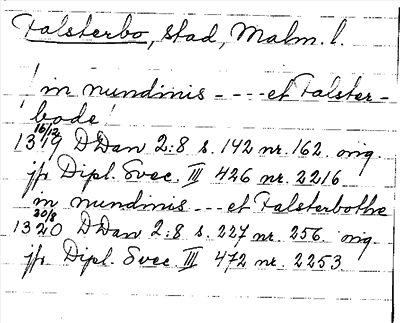 Falsterbo, stad, Malm. l.
! in nundinis - - - - et Falster-
bode!
16/12
1319 DDan 2:8 s. 142 nr. 162. orig.
jfr Dipl. Svec. III 426 nr. 2216
in nundinis - - - et Falsterbothe
20/8
1320 DDan 2:8 s. 227 nr. 256. orig
jfr Dipl. Svec. III 472 nr. 2253